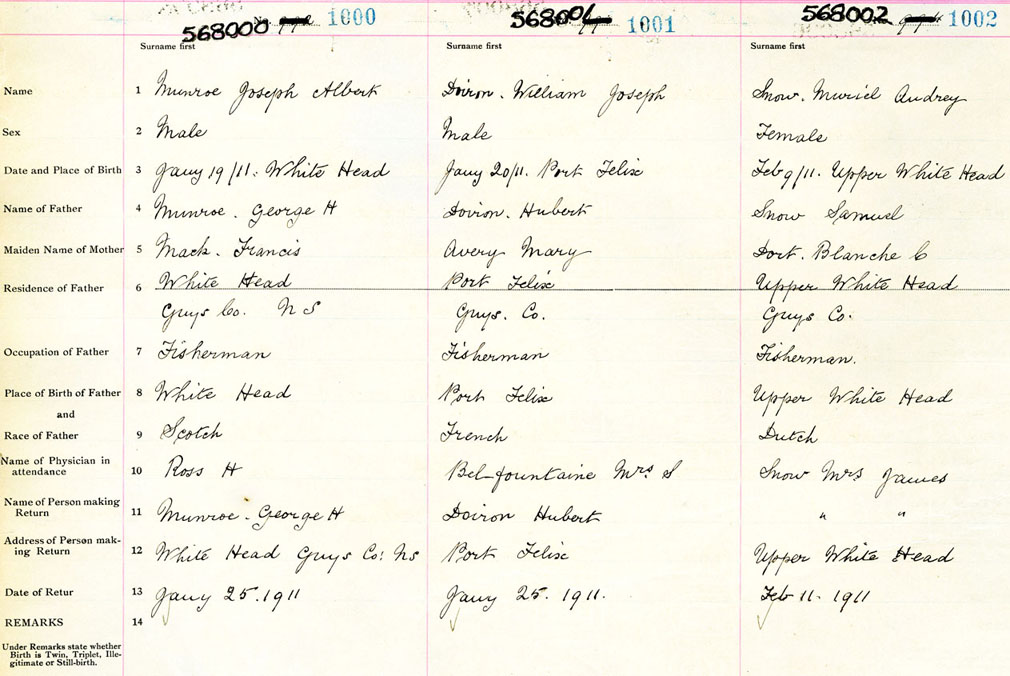 568000 1000 568001 1001 568002 1002
Surname first Surname first Surname first
Name 1 Munroe Joseph Albert Doiron. William Joseph Snow. Muriel Audrey
Sex 2 Male Male Female
Date and Place of Birth 3 Jany 19/11. White Head Jany 20/11. Port Felix Feb 9/11. Upper White Head
Name of Father 4 Munroe. George H Doiron. Hubert Snow Samuel
Maiden Name of Mother 5 Mack. Francis Avery Mary Dort. Blanche C
Residence of Father 6 White Head Port Felix Upper White Head
Guys Co. N S Guys. Co. Guys Co.
Occupation of Father 7 Fisherman Fisherman Fisherman.
Place of Birth of Father 8 White Head Port Felix Upper White Head
and
Race of Father 9 Scotch French Dutch
Name of Physician in
attendance 10 Ross H Bel-fountaine Mrs S Snow Mrs James
Name of Person making
Return 11 Munroe. George H Doiron Hubert " "
Address of Person mak-
ing Return 12 White Head Guys Co: NS Port Felix Upper White Head
Date of Retur 13 Jany 25. 1911 Jany 25. 1911. Feb 11. 1911
REMARKS 14
Under Remarks state whether
Birth is Twin, Triplet, Ille-
gitimate or Still-birth.